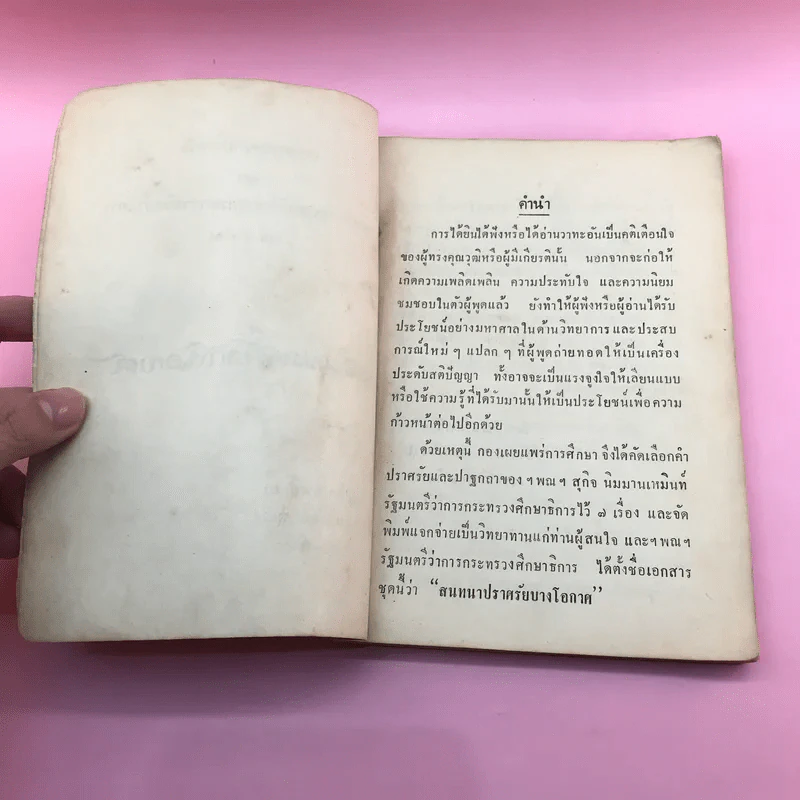 คำนำ
การได้ยินได้ฟังหรือได้อ่านวาทะอันเป็นคติเตือนใจ
ของผู้ทรงคุณวุฒิหรือผู้มีเกียรตินั้น นอกจากจะก่อให้
เกิดความเพลิดเพลิน ความประทับใจ และความนิยม
ชมชอบในตัวผู้พูดแล้ว ยังทำให้ผู้ฟังหรือผู้อ่านได้รับ
ประโยชน์อย่างมหาศาลในด้านวิทยาการ และประสบ
การณ์ใหม่ ๆ แปลก ๆ ที่ผู้พูดถ่ายทอดให้เป็นเครื่อง
ประดับสติปัญญา ทั้งอาจจะเป็นแรงจูงใจให้เลียนแบบ
หรือใช้ความรู้ที่ได้รับมานั้นให้เป็นประโยชน์เพื่อความ
ก้าวหน้าต่อไปอีกด้วย
ด้วยเหตุนี้ กองเผยแพร่การศึกษา จึงได้คัดเลือกคำ
ปราศรัยและปาฐกถาของ ฯพณฯ สุกิจ นิมมานเหมินท์
รัฐมนตรีว่าการกระทรวงศึกษาธิการไว้ ๗ เรื่อง และจัด
พิมพ์แจกจ่ายเป็นวิทยาทานแก่ท่านผู้สนใจ และฯพณฯ
รัฐมนตรีว่าการกระทรวงศึกษาธิการ ได้ตั้งชื่อเอกสาร
ชุดนี้ว่า "สนทนาปราศรัยบางโอกาศ"